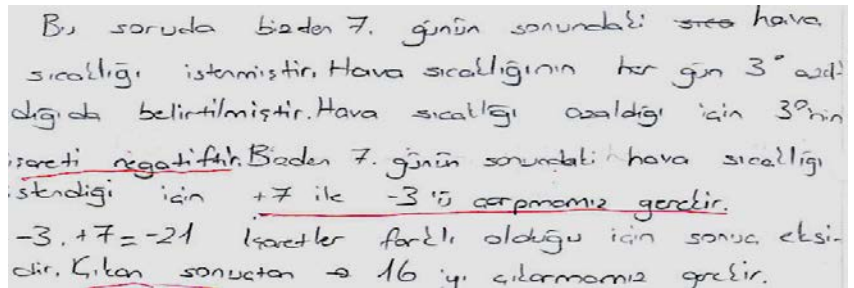 Bu soruda bizden 7. günün sonundaki sıca hava
sıcaklığı istenmiştir. Hava sıcaklığının her gün 3° azal-
dığı da belirtilmiştir. Hava sıcaklığı azaldığı için 3°nin
işareti negatiftir. Bizden 7. günün sonundaki hava sıcaklığı
istendiği için +7 ile -3 'ü çarpmamız gerekir.
-3. +7 = -21 İşaretler farklı olduğu için sonuç eksi-
dir. Çıkan sonuçtan → 16 'yı çıkarmamız gerekir.